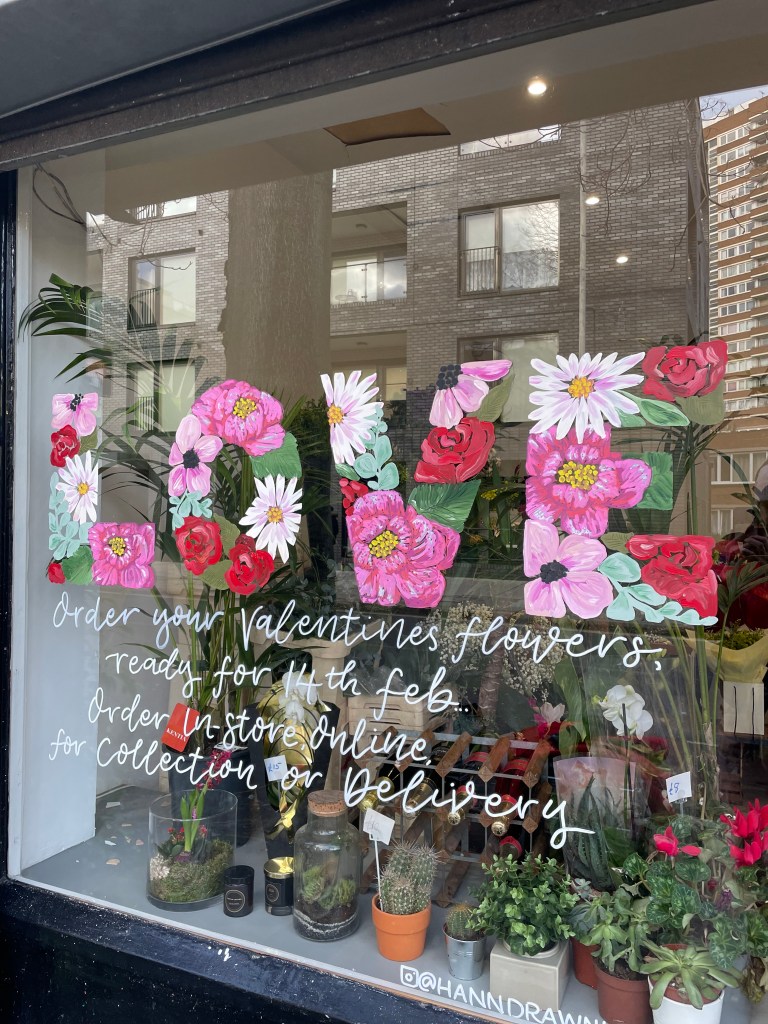 LOVE
Order your Valentines flowers,
ready for 14th feb...
Order In-store, Online,
for Collection or Delivery
KENTIA
£15
£8
@HANNDRAWN